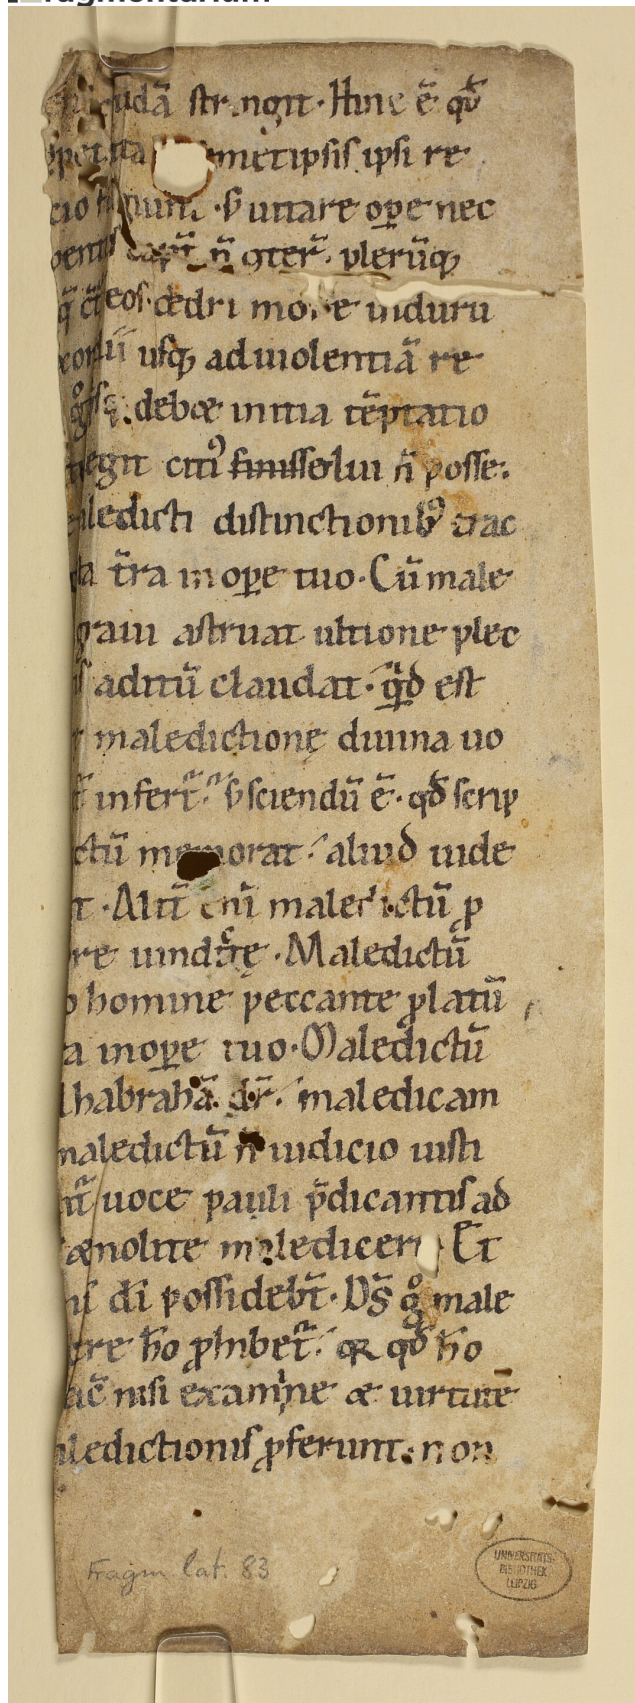 fragmentarium
udā str ngit · Hinc ē qđ
metipsis ipsi re
uitare oꝑe nec
n̄ ꝯter̄ · plerūq;
eos · cedri mo e induru
usq; ad uiolentiā re
debet initia tēptatio
egit citi⁹ finisse solui n̄ posse .
ledicti distinctionib⁹ trac
ta t̄ra in oꝑe tuo · Cū male
graui astruat ultione plec
aditū claudat · qͥd est
maledictionę diuina uo
infert̄ · ẜ sciendū ē · qđ scrip
ctū memorat · aliud uide
t · Alit̄ eni maledictū ꝓ
re uindicte · Maledictū
o homine peccante ꝓlatū
a in oꝑe tuo · Maledictū
habrahā dr̄ · maledicam
maledictū n̄ iudicio iusti
uoce pauli p̄dicantis ad
& nolite maledicere Et
di possidebt̄ · Dꝰ gͦ male
re ħo ꝓhibet̄ · qꝛ qđ ħo
nisi examine & uirtute
ledictionis ꝓferunt · non
Fragm lat. 83
UNIVERSITÄTS-
BIBLIOTHEK
LEIPZIG